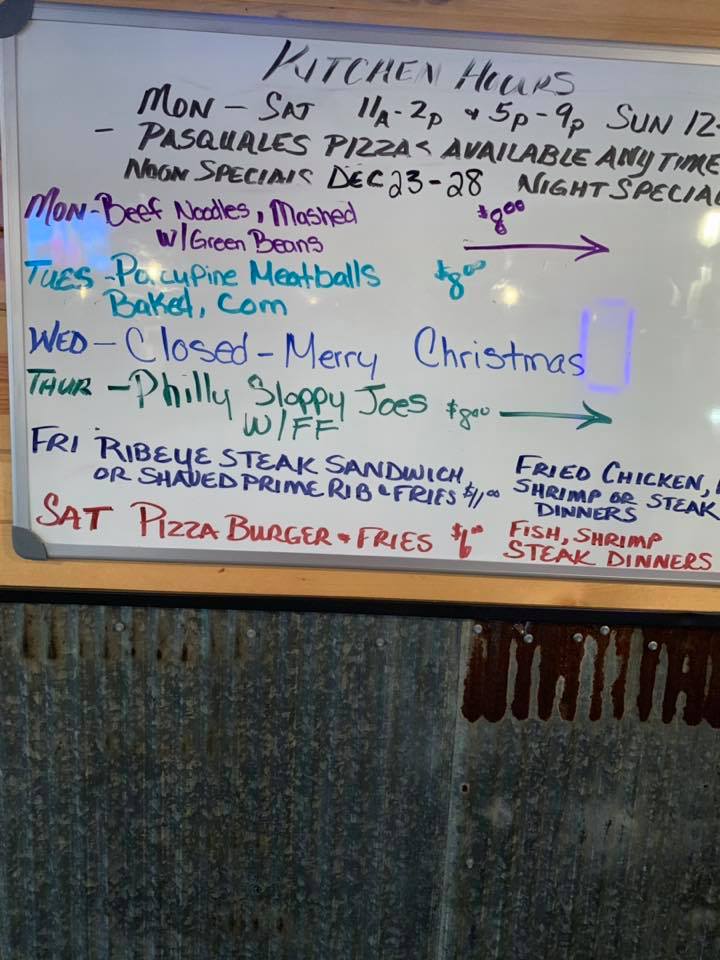 KITCHEN HOURS
MON - SAT 11A-2P & 5P-9P SUN 12-
- PASQUALES PIZZAS AVAILABLE ANYTIME
NOON SPECIALS DEC 23-28 NIGHT SPECIAL
MON-Beef Noodles, Mashed $8.00
W/Green Beans
TUES-Porcupine Meatballs $8.00
Baked, Corn
WED-Closed-Merry Christmas
THUR-Philly Sloppy Joes $8.00
W/FF
FRI RIBEYE STEAK SANDWICH
OR SHAVED PRIME RIB & FRIES $11.00
FRIED CHICKEN,
SHRIMP OR STEAK
DINNERS
SAT PIZZA BURGER & FRIES $6.00
FISH, SHRIMP
STEAK DINNERS